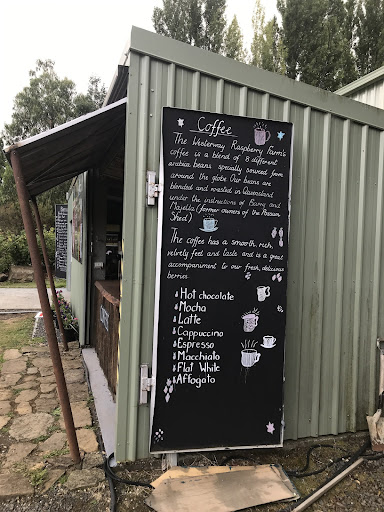 Coffee
The Westerway Raspberry Farm's
coffee is a blend of 8 different
arabica beans specially sourced from
around the globe. Our beans are
blended and roasted in Queensland
under the instructions of Barry and
Majella (former owners of the Possum
Shed)
The coffee has a smooth, rich,
velvety feel and taste and is a great
accompaniment to our fresh, delicious
berries.
Hot chocolate
Mocha
Latte
Cappuccino
Espresso
Macchiato
Flat White
Affogato